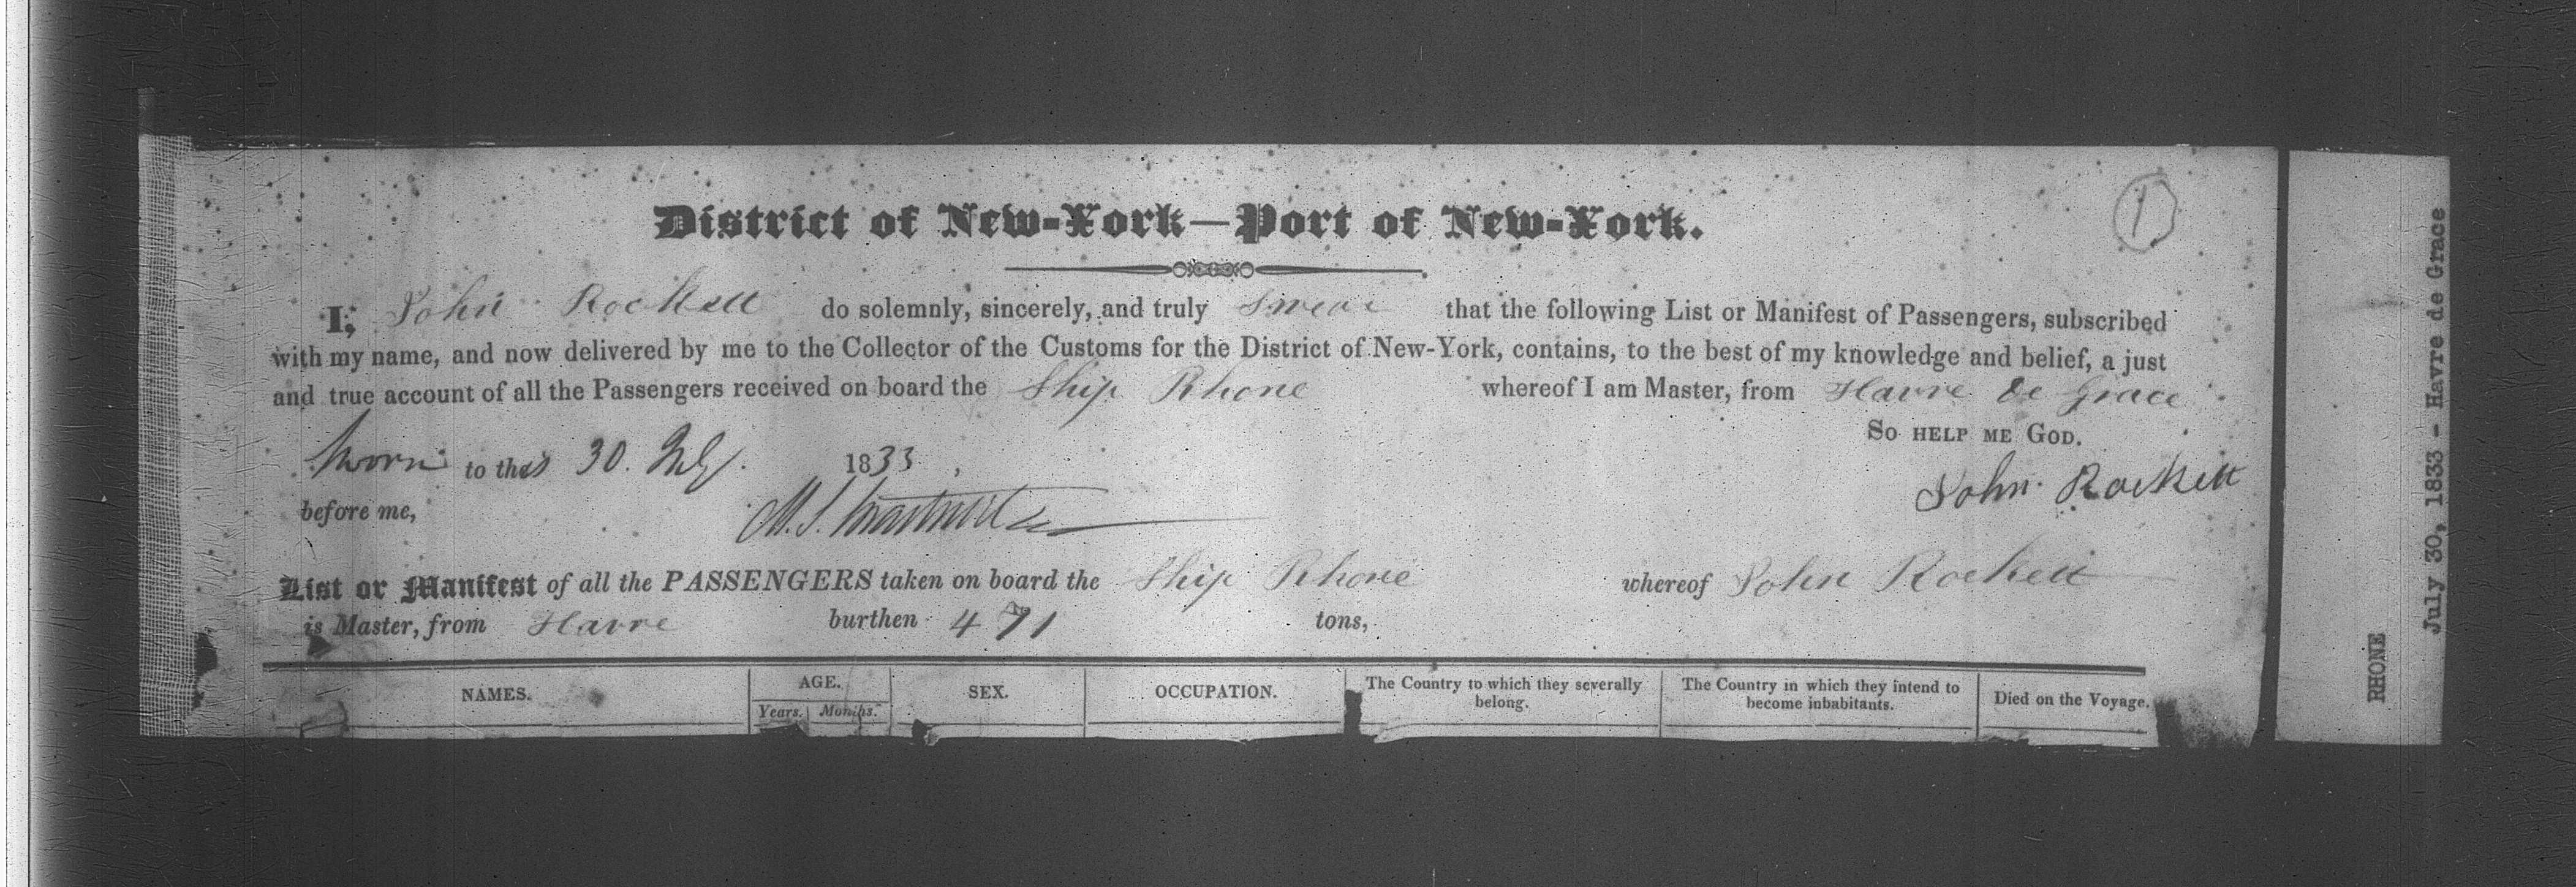 District of New-York—Port of New-York.
1
I, John Rockett do solemnly, sincerely, and truly swear that the following List or Manifest of Passengers, subscribed
with my name, and now delivered by me to the Collector of the Customs for the District of New-York, contains, to the best of my knowledge and belief, a just
and true account of all the Passengers received on board the Ship Rhone whereof I am Master, from Havre de Grace
So help me God.
Sworn to this 30. July. 1833,
John Rockett
before me,
List or Manifest of all the PASSENGERS taken on board the Ship Rhone whereof John Rockett
is Master, from Havre burthen 471 tons,
NAMES. AGE. SEX. OCCUPATION. The Country to which they severally belong. The Country in which they intend to become inhabitants. Died on the Voyage.
Years. Months.
RHONE
July 30, 1833 - Havre de Grace